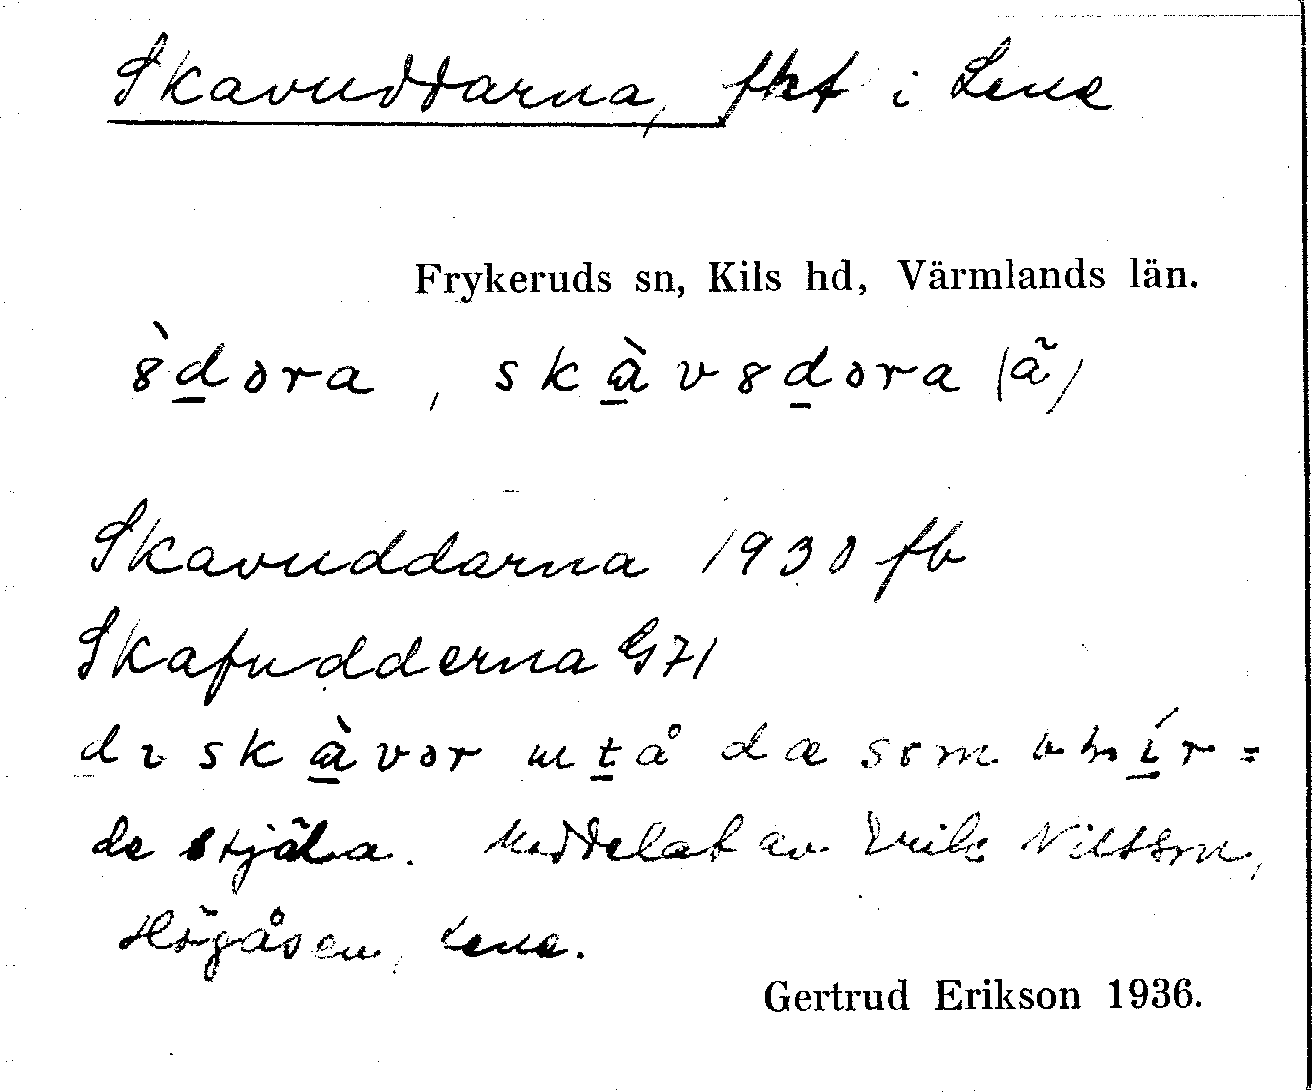 Skavuddarna, fkt i Lene
Frykeruds sn, Kils hd, Värmlands län.
8̀dəra, skàv8dəra (ã)
Skavuddarna 1930 fb
Skafudderna G71
dɩ skàvər utå dæ som
de stjäla. Meddelat av Erik Nilsson,
Högåsen, Lene.
Gertrud Erikson 1936.